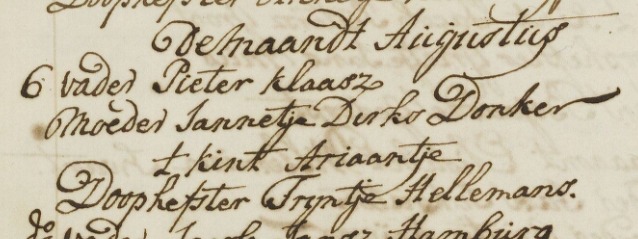 Doophefster
De maandt Augustus
6 vader Pieter Klaasz
Moeder Jannetje Dirks Donker
t kint Ariaantje
Doophefster Tryntje Hellemans.
do vader Jacob Jansz Hamburg